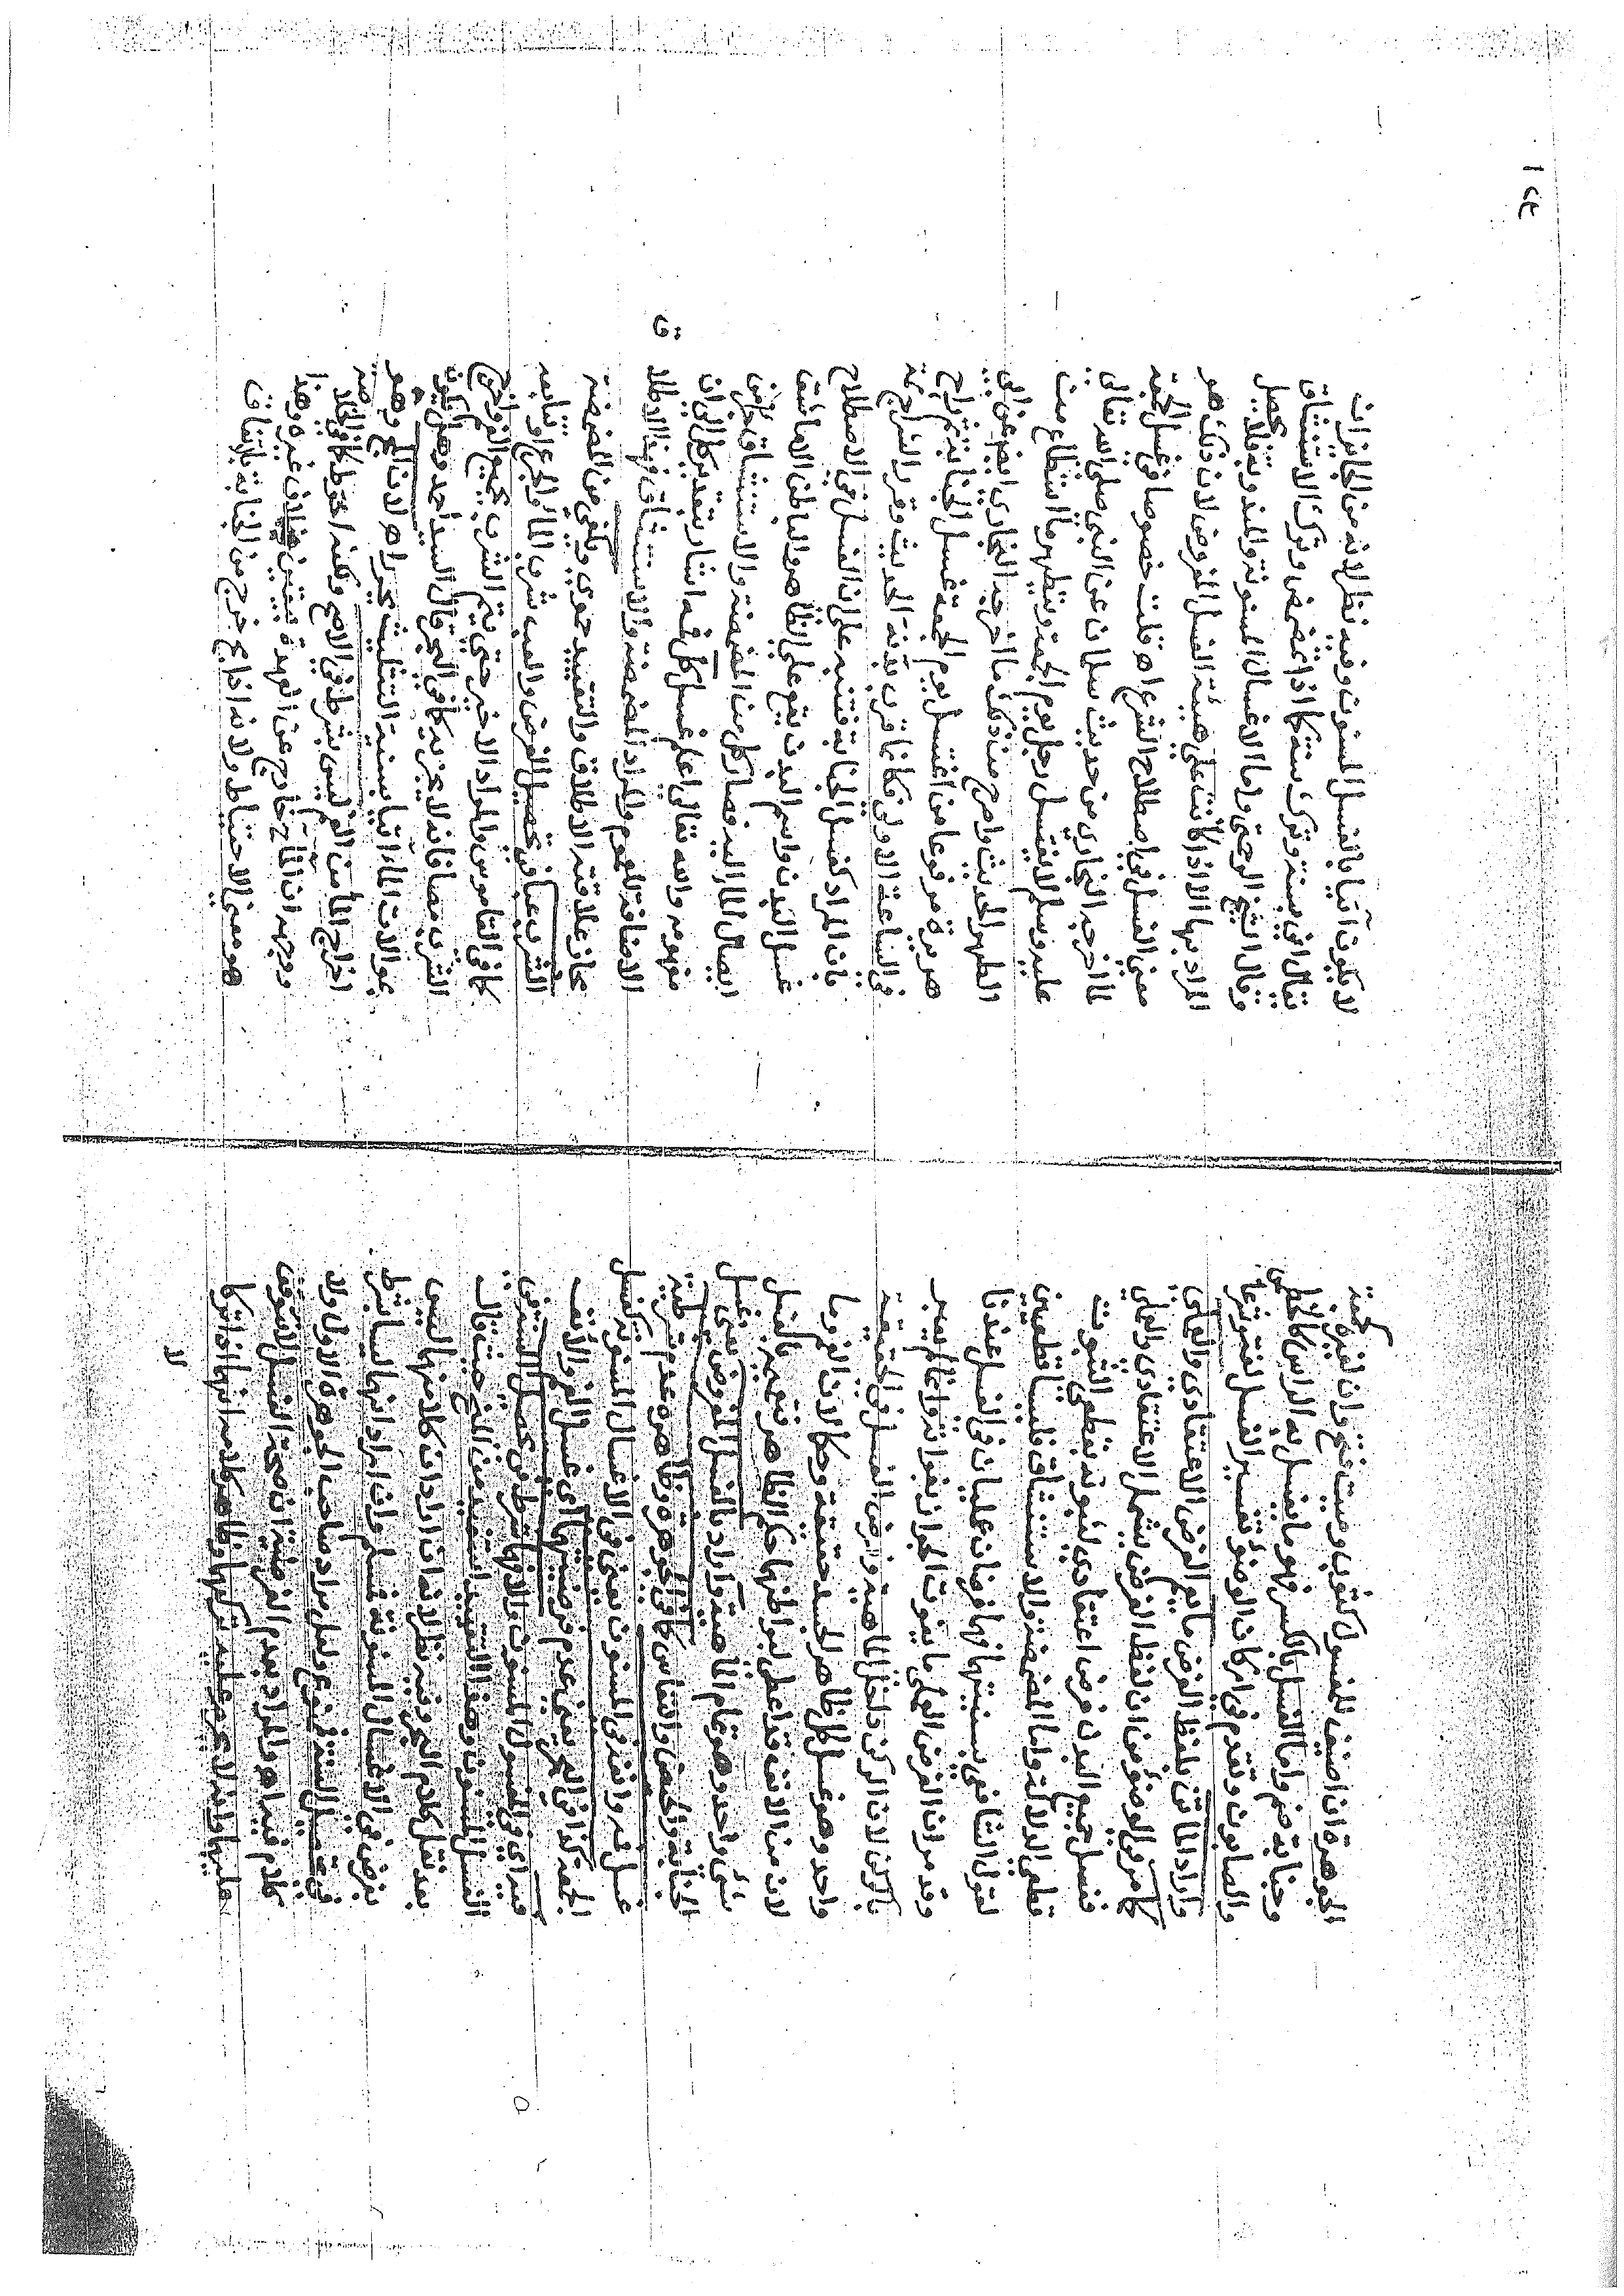 الجوهرة ان اضيف للمغسول كثوب وميت فتح وان لغيره كجمعة
وجنابة ضم واما الغسل بالكسر فهو ما يغسل به الراس كالخطمي
والصابون وتقدم في اركان الوضوء تفسير الغسل لغة وشرعا
واراد الماتن بلفظ الفرض ما يعم الفرض الاعتقادي والعملي
كما مر في الوضوء من ان لفظ الفرض يشمل الاعتقادي والعملي
فغسل جميع البدن فرض اعتقادي لثبوته بقطعي الثبوت
قطعي الدلالة واما المضمضة والاستنشاق فليستا قطعيتين
لقول الشافعي بسنيتهما فهما فرضان عمليان في الغسل عندنا
وقد مر ان الفرض العملي ما يفوت الجواز بفواته وانما لم يعبر
بالركن لان الركن داخل الماهية وفرض الغسل في الحقيقة
واحد وهو غسل كل ظاهر الجسد حقيقة وحكما لان الفم وما
لان من الانف قد اعطي لبواطنها حكم الظاهر وتعبيره بالغسل
شيء واحد وهو تمام الماهية واراد بالغسل المفروض يعني غسل
الجنابة والحيض والنفاس كما في الجوهرة وظاهره عدم شرطية
غسل فمه وانفه في المسنون يعني في الاغسال المسنونة كغسل
الجمعة كذا في البحر يعني عدم فرضيتها اي غسل الفم والانف
فيه اي في الغسل المسنون والا فهما شرط في تحصيل السنة في
الغسل المسنون وهذا التقييد استفيد من المنح حيث قال
بعد نقل كلام البحر وفيه نظر لانه ان اراد ان كلا منهما ليس
بفرض في الاغسال المسنونة فمسلم وان اراد انهما ليسا شرط
في تحصيل السنة فممنوع ولعل مراد صاحب الجوهرة الاول ولا
كلام فيه اه والمراد بعدم الفرضية ان صحة الغسل لا تتوقف
عليهما وانه لا يحرم عليه تركهما وظاهر كلامه انهما اذا تركا
لا
لا يكون آتيا بالغسل المسنون وفيه نظر لانه من الجائز ان
يقال اتى بسنة وترك سنة كما اذا تمضمض وترك الاستنشاق
وقال الشيخ الرحمتي واما الاغسال المسنونة والمندوبة فلا تحصل
المراد بها الا اذا كانت على هيئة الغسل المفروض لان ذلك هو
معنى الغسل في اصطلاح الشرع اه قلت خصوصا في غسل الجمعة
لما اخرجه البخاري من حديث سلمان عن النبي صلى الله تعالى
عليه وسلم لا يغتسل رجل يوم الجمعة ويتطهر ما استطاع من
الطهور الحديث واصرح من ذلك ما اخرجه البخاري ايضا عن ابي
هريرة مرفوعا من اغتسل يوم الجمعة غسل الجنابة ثم راح
في الساعة الاولى فكانما قرب بدنة الحديث وقرر الشراح
بان المراد كغسل الجنابة فتنبه على ان الغسل في الاصطلاح
غسل البدن واسم البدن يقع على الظاهر والباطن الا ما تعذر
ايصال الماء اليه فصار كل من المضمضة والاستنشاق
مفهومه والله تعالى اعلم غسل كل فمه اشار بتقدير كل الى ان
الاضافة للعموم والمراد المضمضة والاستنشاق
مجاز علاقته الاطلاق والتقييد حموي ويكفي عن المضمضة
الشرب عبا في تحصيل الفرض والعب شرب الماء او الجرع او تتابعه
كما في القاموس والمراد الاخير حتى يعم الشرب جميع الفم واحترز
الشرب مصا فانه لا يجزيه كما في البحر قال السيد احمد وهل يكون
عبوات الماء آتيا بسنية التثليث يحرر اه لان المج وهو
اخراج الماء من الفم ليس بشرط في الاصح
ووجهه ان الماج خارج عن العهدة بيقين بخلاف غيره وهذا
هو معنى الاحتياط ولانه اذا مج خرج من الجنابة باتفاق